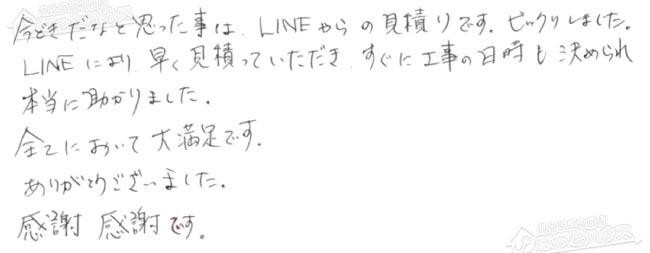 今どきだなと思った事は、LINEからの見積りです。ビックリしました。
LINEにより、早く見積っていただき、すぐに工事の日時も決められ
本当に助かりました。
全てにおいて大満足です。
ありがとうございました。
感謝 感謝です。